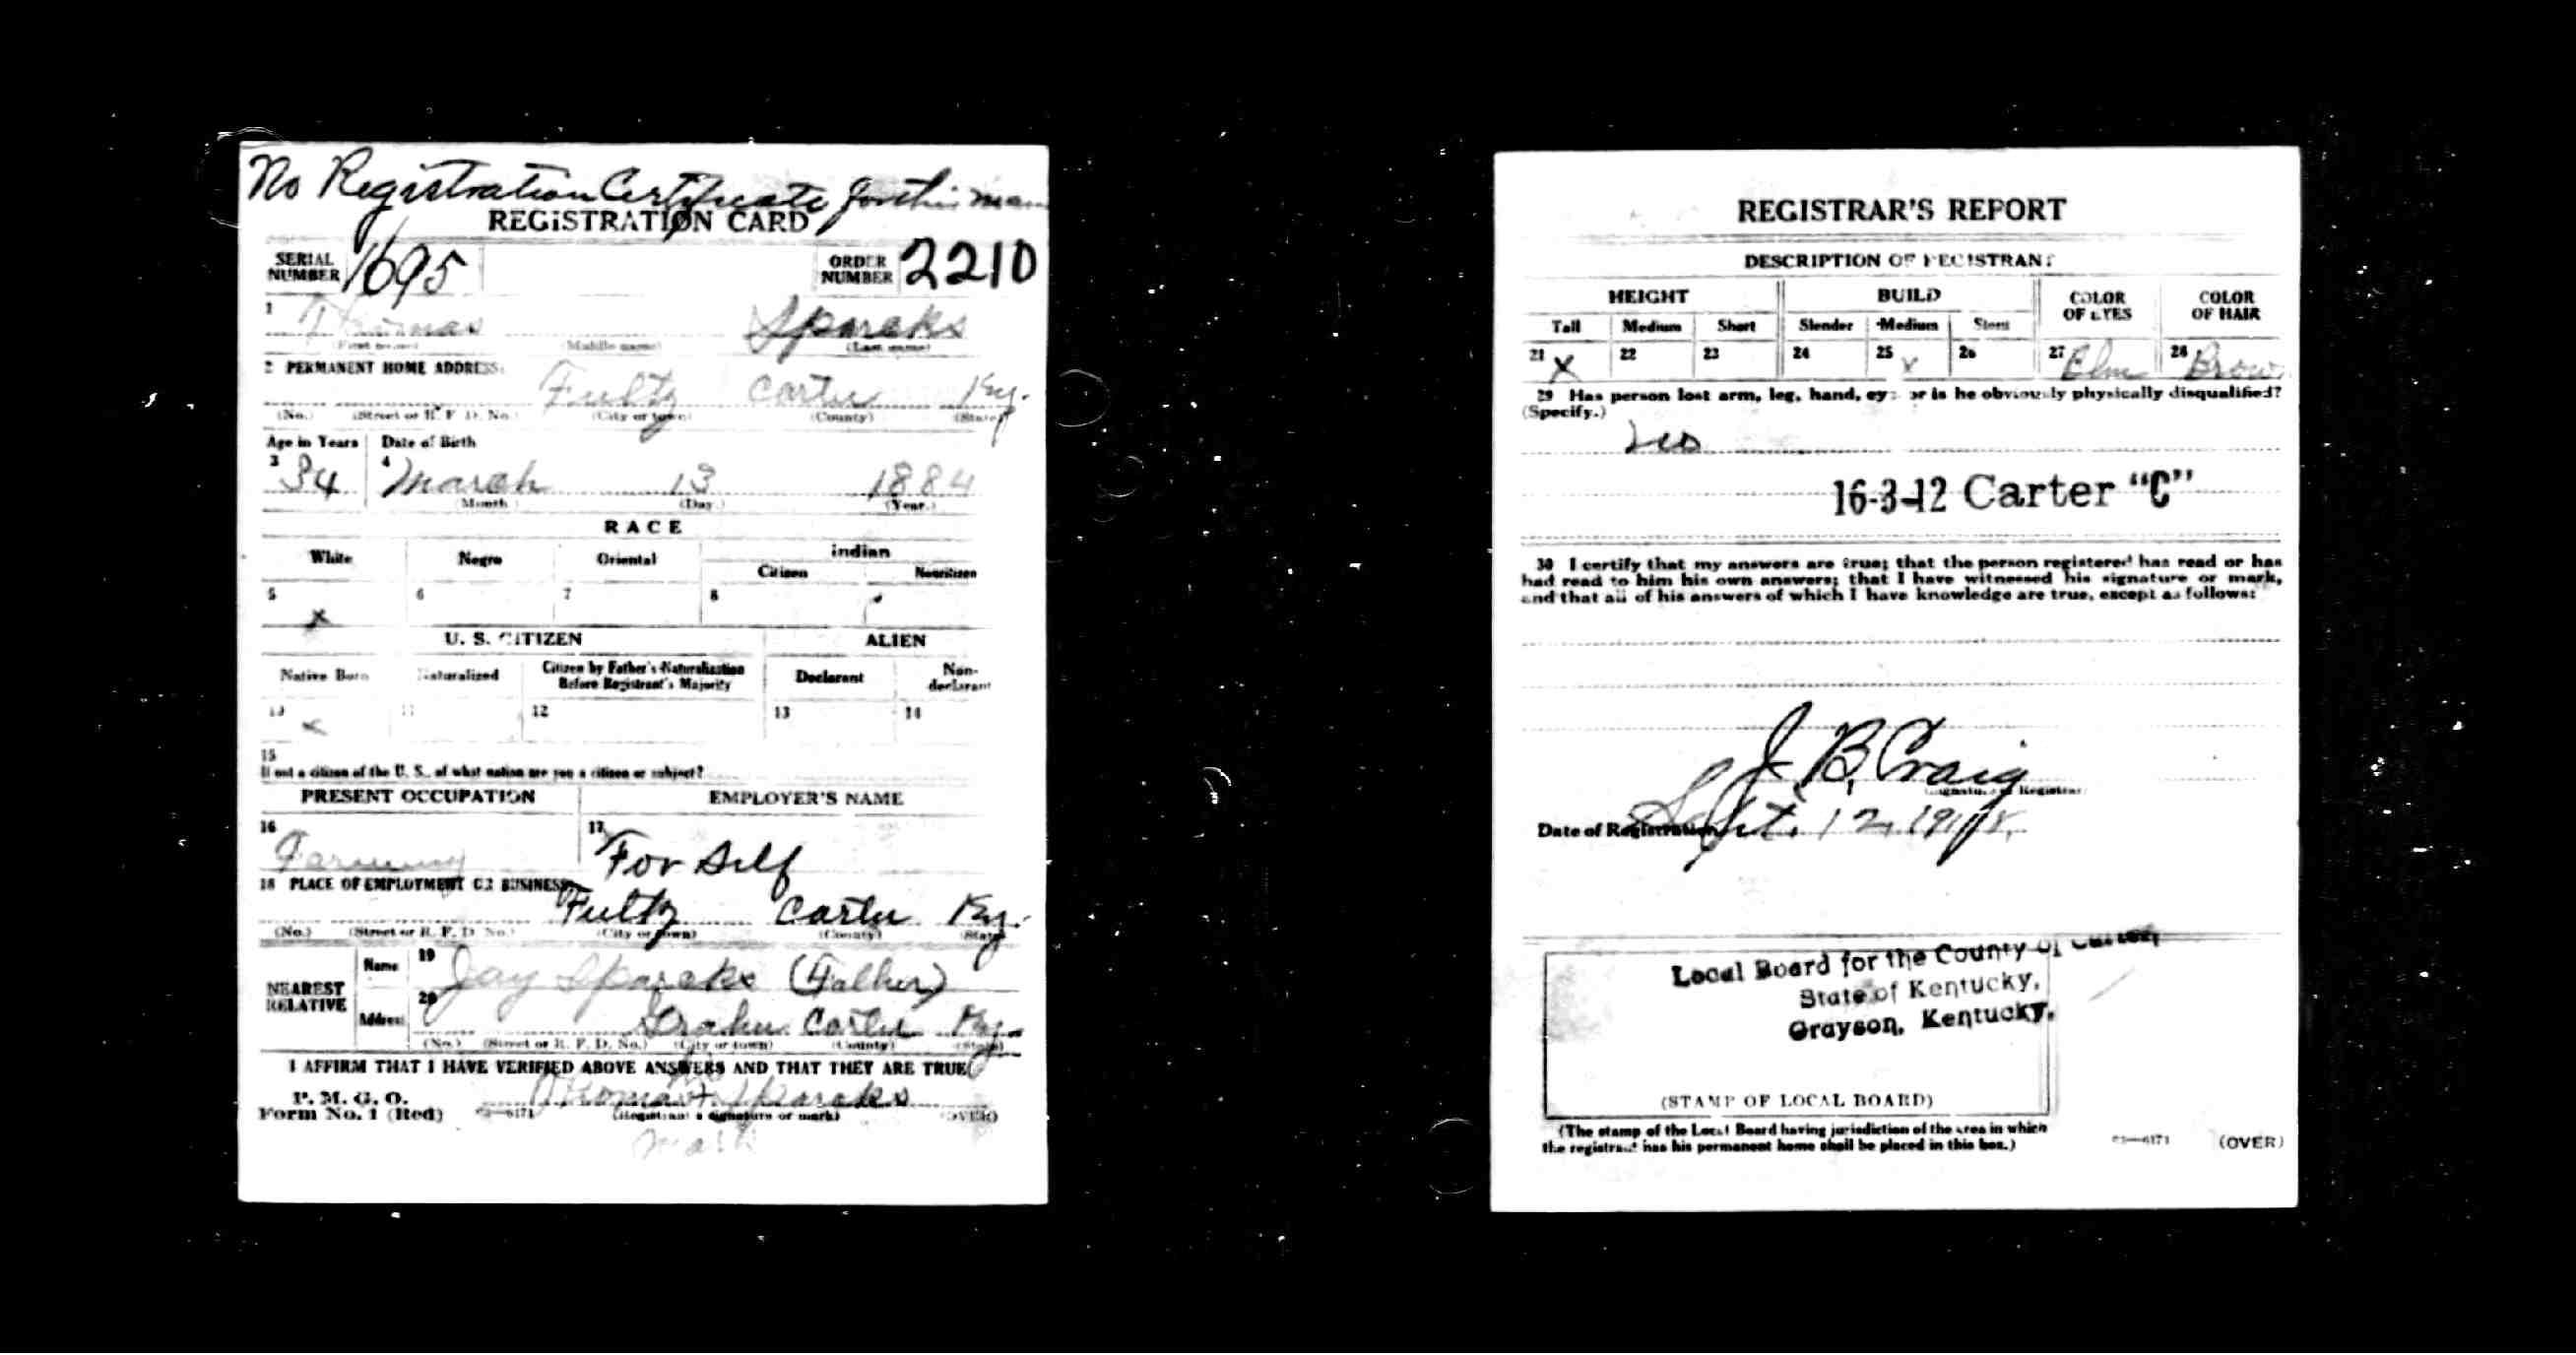 No Registration Certificate for this man
REGISTRATION CARD
SERIAL NUMBER 1695 ORDER NUMBER 2210
1 Thomas Sparks
(First name) (Middle name) (Last name)
2 PERMANENT HOME ADDRESS: Fultz Carter Ky.
(No.) (Street or R. F. D. No.) (City or town) (County) (State)
Age in Years Date of Birth
3 34 4 March 13 1884
(Month) (Day.) (Year.)
RACE
White Negro Oriental Indian
Citizen Noncitizen
5 X 6 7 8
U. S. CITIZEN ALIEN
Native Born Naturalized Citizen by Father's Naturalization Before Registrant's Majority Declarant Non-declarant
10 X 11 12 13 14
15
If not a citizen of the U. S., of what nation are you a citizen or subject?
PRESENT OCCUPATION EMPLOYER'S NAME
16 Farming 17 For Self
18 PLACE OF EMPLOYMENT OR BUSINESS:
Fultz Carter Ky.
(No.) (Street or R. F. D. No.) (City or town) (County) (State)
NEAREST RELATIVE
Name 19 Jay Sparks (Father)
Address 20 Grahn Carter Ky.
(No.) (Street or R. F. D. No.) (City or town) (County) (State)
I AFFIRM THAT I HAVE VERIFIED ABOVE ANSWERS AND THAT THEY ARE TRUE
P. M. G. O.
Form No. 1 (Red) 03—6171 Thomas X Sparks
(Registrant's signature or mark) (OVER)
mark
REGISTRAR'S REPORT
DESCRIPTION OF REGISTRANT
HEIGHT BUILD COLOR OF EYES COLOR OF HAIR
Tall Medium Short Slender Medium Stout
21 X 22 23 24 25 X 26 27 Blue 28 Brown
29 Has person lost arm, leg, hand, eye, or is he obviously physically disqualified?
(Specify.)
16-3-12 Carter "C"
30 I certify that my answers are true; that the person registered has read or has
had read to him his own answers; that I have witnessed his signature or mark,
and that all of his answers of which I have knowledge are true, except as follows:
J. B. Craig
(Signature of Registrar)
Date of Registration Sept. 12, 1918.
Local Board for the County of Carter,
State of Kentucky,
Grayson, Kentucky.
(STAMP OF LOCAL BOARD)
(The stamp of the Local Board having jurisdiction of the area in which
the registrant has his permanent home shall be placed in this box.)
03—6171 (OVER)